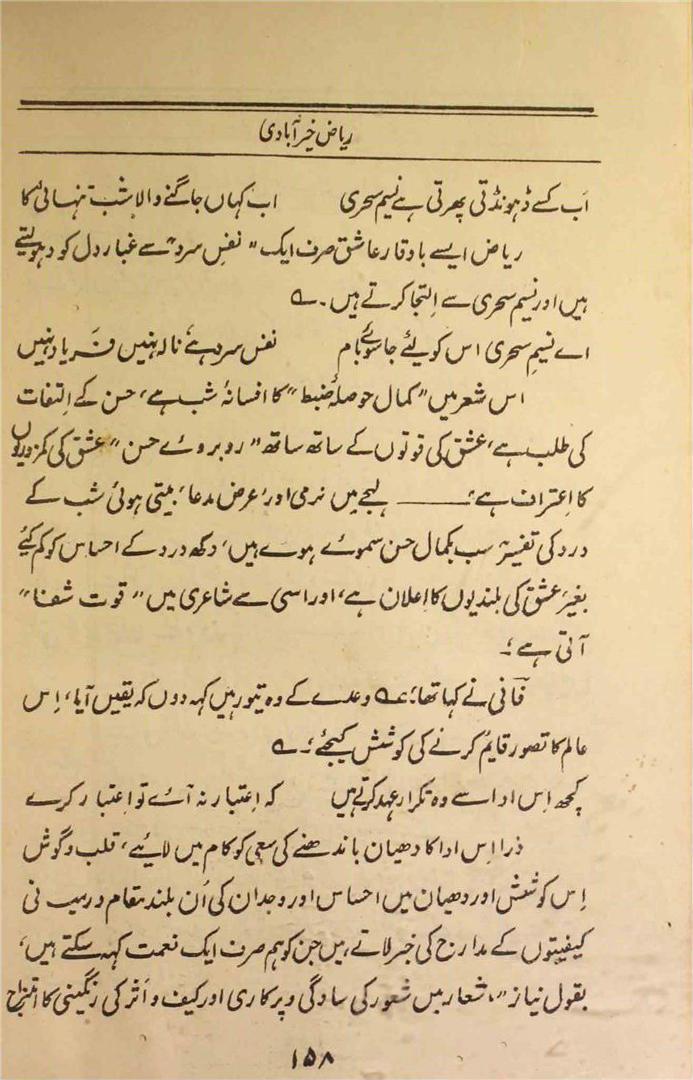 ریاض خیرآبادی
اَب کسے ڈہونڈتی پھرتی ہے نسیم سحری اب کہاں جاگنے والا شب تنہائی کا
ریاض ایسے باوقار عاشق صرف ایک "نفسِ سرد" سے غبار دل کو دہولیتے
ہیں اور نسیم سحری سے اِلتجا کرتے ہیں۔ ؎
اے نسیمِ سحری اس کو لیئے جا سوئے بام نفس سرد ہے نالہ نہیں فریاد نہیں
اس شعر میں "کمال حوصلۂ ضبط" کا افسانۂ شب ہے، حسن کے اِلتفات
کی طلب ہے، عشق کی قوتوں کے ساتھ ساتھ "روبروئے حسن" عشق کی کمزوریوں
کا اِعتراف ہے، ——— لہجے میں نرمی اور، عرض مدعا، بیتی ہوئی شب کے
درد کی تفسیر سب بکمال حسن سموئے ہوے ہیں، دکھ درد کے احساس کو کم کیئے
بغیر، عشق کی بلندیوں کا اِعلان ہے، اور اسی سے شاعری میں "قوت شفا"
آتی ہے؛۔
فانی نے کہا تھا؛ ؎ وعدے کے وہ تیور ہیں کہہ دوں کہ یقیں آیا، اِس
عالم کا تصور قایم کرنے کی کوشش کیجئے؛۔ ؎
کچھ اِس ادا سے وہ تکرار عہد کرتے ہیں کہ اِعتبار نہ آئے تو اعتبار کرے
ذرا اِس ادا کا دھیان باندھنے کی سعی کو کام میں لائیے، قلب و گوش
اِس کوشش اور دھیان میں احساس اور وجدان کی اُن بلند مقام درمیانی
کیفیتوں کے مدارج کی خبر لاتے ہیں جن کو ہم صرف ایک نعمت کہہ سکتے ہیں،
بقول نیاز "، شعار میں شعور کی سادگی و پرکاری اور کیف و اَثر کی رنگینی کا امتزاج
۱۵۸